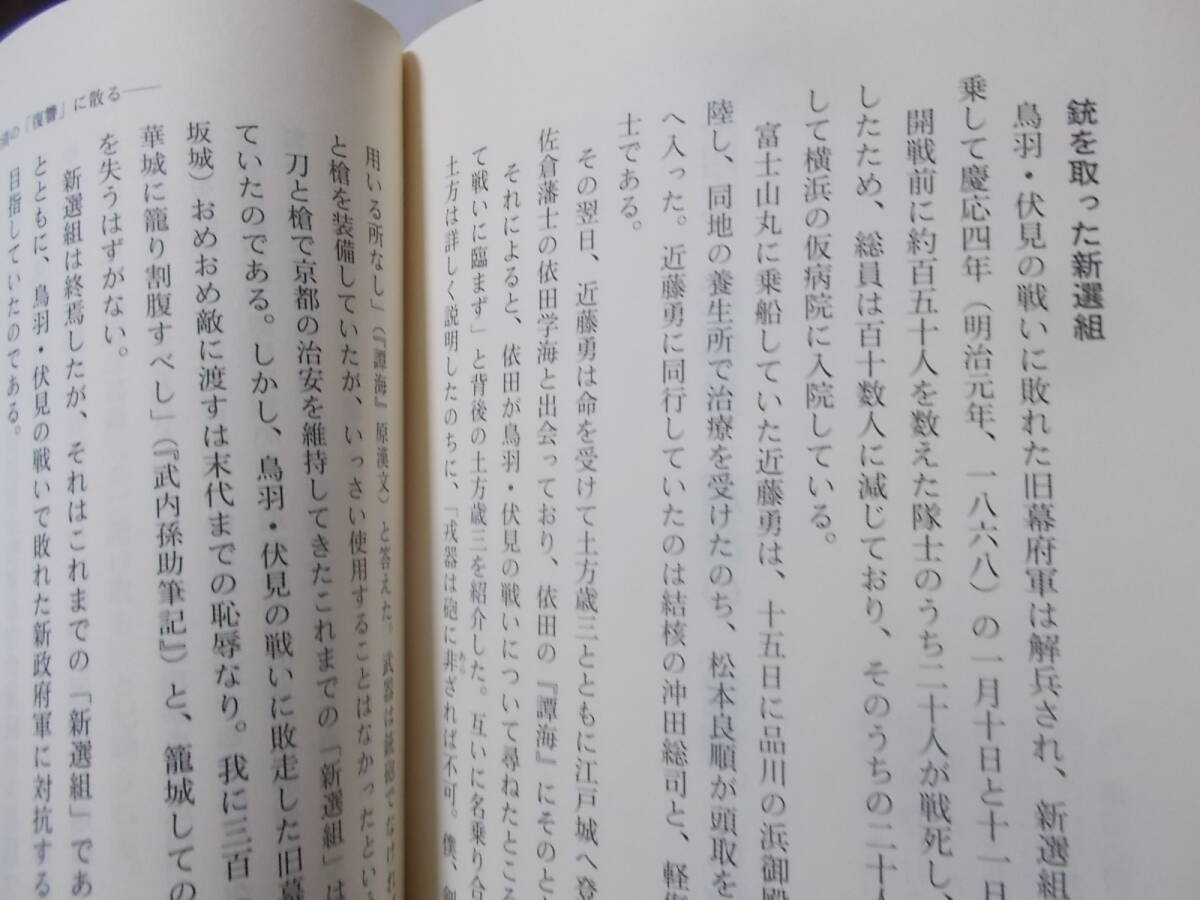 銃を取った新選組
鳥羽・伏見の戦いに敗れた旧幕府軍は解兵され、新選組
乗して慶応四年（明治元年、一八六八）の一月十日と十一日
開戦前に約百五十人を数えた隊士のうち二十人が戦死し、
したため、総員は百十数人に減じており、そのうちの二十人
して横浜の仮病院に入院している。
富士山丸に乗船していた近藤勇は、十五日に品川の浜御殿
陸し、同地の養生所で治療を受けたのち、松本良順が頭取を
へ入った。近藤勇に同行していたのは結核の沖田総司と、軽傷
士である。
その翌日、近藤勇は命を受けて土方歳三とともに江戸城へ登
佐倉藩士の依田学海と出会っており、依田の『譚海』にそのと
それによると、依田が鳥羽・伏見の戦いについて尋ねたところ
て戦いに臨まず」と背後の土方歳三を紹介した。互いに名乗り合
土方は詳しく説明したのちに、「戎器は砲に非ざれば不可。僕、剣
用いる所なし」（『譚海』原漢文）と答えた。武器は銃砲でなければ
と槍を装備していたが、いっさい使用することはなかったという
刀と槍で京都の治安を維持してきたこれまでの「新選組」は
ていたのである。しかし、鳥羽・伏見の戦いに敗走した旧幕
坂城）おめおめ敵に渡すは末代までの恥辱なり。我に三百
華城に籠り割腹すべし」（『武内孫助筆記』）と、籠城しての
を失うはずがない。
新選組は終焉したが、それはこれまでの「新選組」であ
とともに、鳥羽・伏見の戦いで敗れた新政府軍に対抗する
目指していたのである。
の「復讐」に散る――